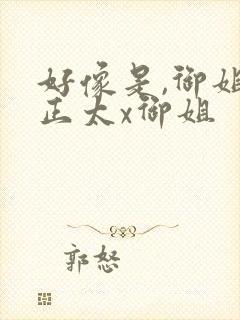 好像是,御姐
正太x御姐
郭怒